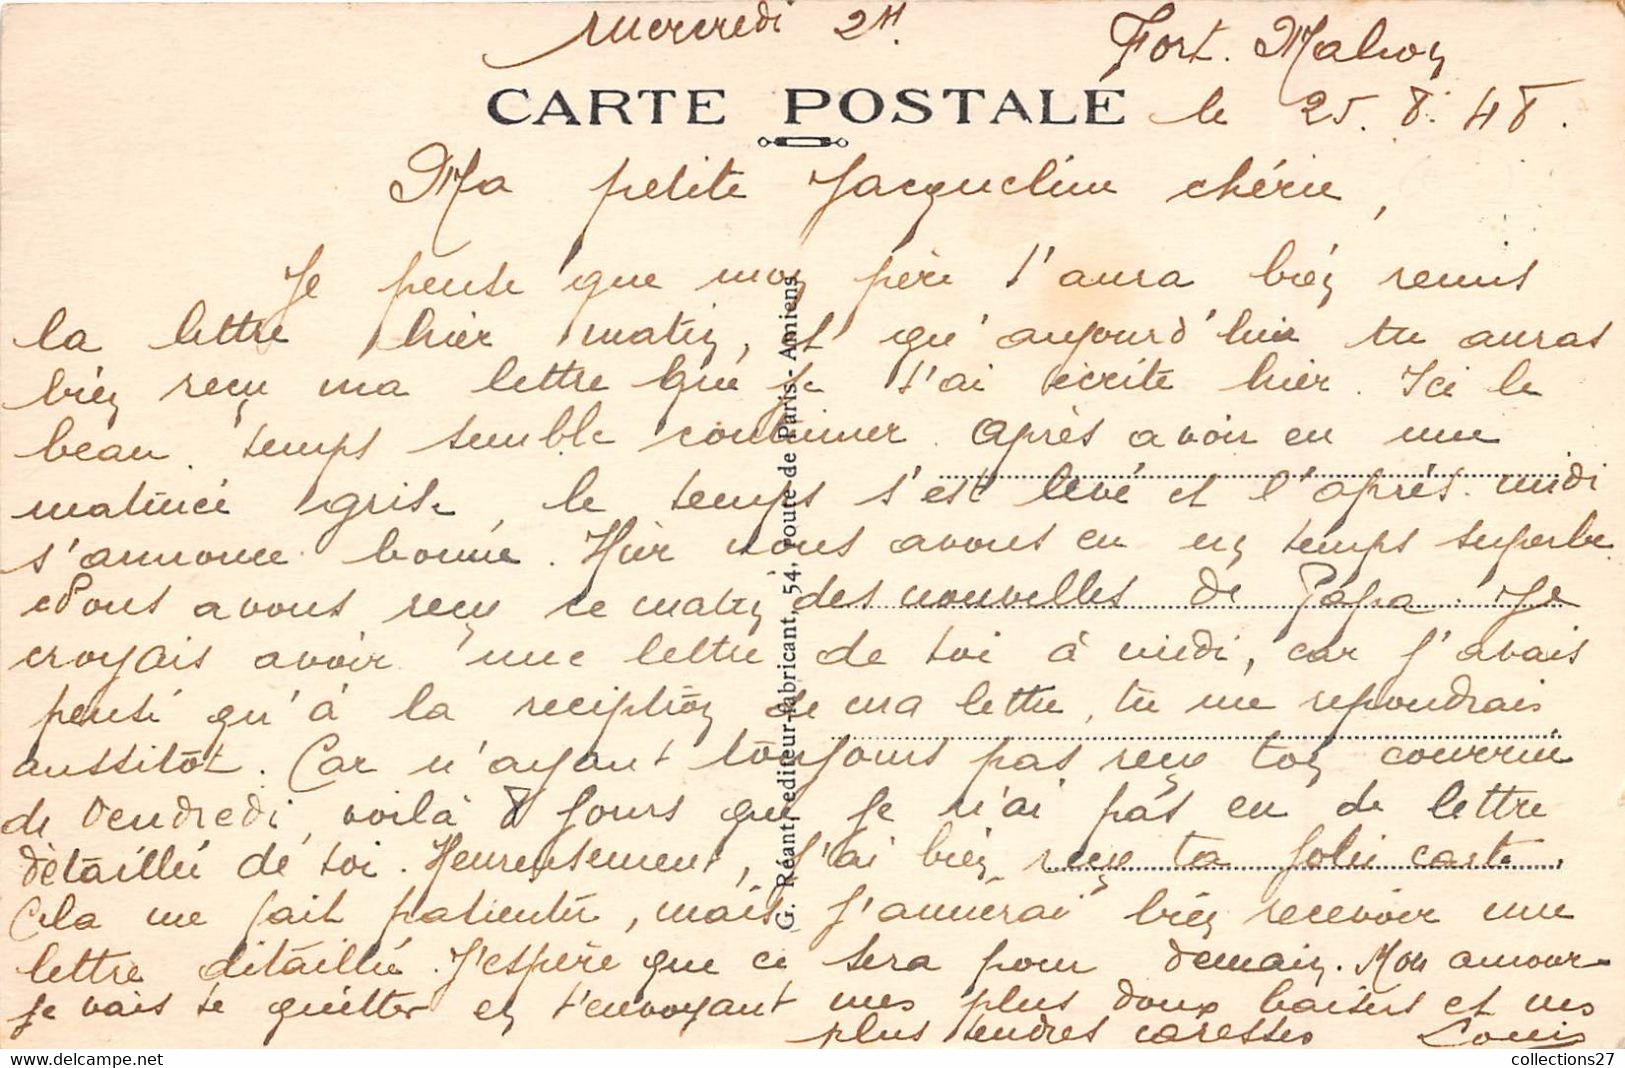 Mercredi 2H.
Fort. Mahon
CARTE POSTALE
le 25. 8. 48.
Ma petite Jacqueline chérie,
Je pense que mon père t'aura bien remis
la lettre hier matin, et qu'aujourd'hui tu auras
bien reçu ma lettre que je t'ai écrite hier. Ici le
beau temps semble continuer. Après avoir eu une
matinée grise, le temps s'est levé et l'après-midi
s'annonce bonne. Hier nous avons eu un temps superbe.
Nous avons reçu ce matin des nouvelles de Papa. Je
croyais avoir une lettre de toi à midi, car j'avais
pensé qu'à la réception de ma lettre, tu me repondrais
aussitôt. Car n'ayant toujours pas reçu ton courrier
de Vendredi, voilà 8 jours que je n'ai pas eu de lettre
détaillée de toi. Heureusement, j'ai bien reçu ta jolie carte.
Cela me fait patienter, mais j'aimerai bien recevoir une
lettre détaillée. J'espère que ce sera pour demain. Mon amour
je vais te quitter en t'envoyant mes plus doux baisers et mes
plus tendres caresses Louis
G. Réant, editeur-fabricant, 54, route de Paris - Amiens
collections27